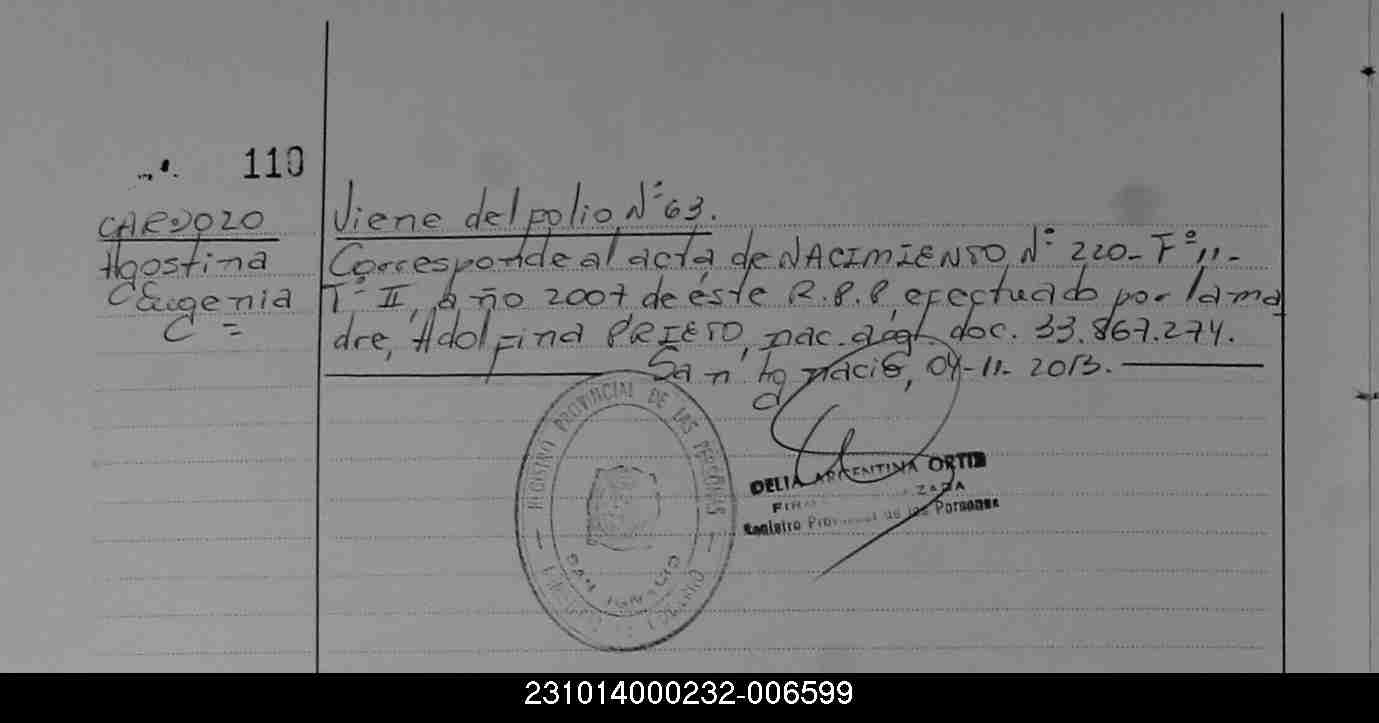 110
CARDOZO
Agostina
Eugenia
C =
Viene del folio, Nº 63.
Corresponde al acta, de NACIMIENTO, Nº 220- Fº 11-
Tº II, año 2007 de éste R.P.P, efectuado por la ma
dre, Adolfina PRIETO, nac. arg. doc. 33.867.274.
San Ignacio, 04-11-2013.
REGISTRO PROVINCIAL DE LAS PERSONAS
SAN IGNACIO
DELIA ARGENTINA ORTIZ
Registro Provincial de las Personas
231014000232-006599